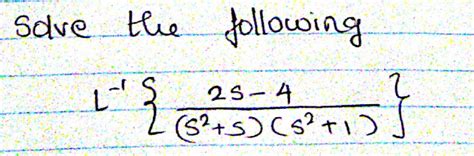 Solve the following
L⁻¹ { 2s-4 / (s²+s)(s²+1) }